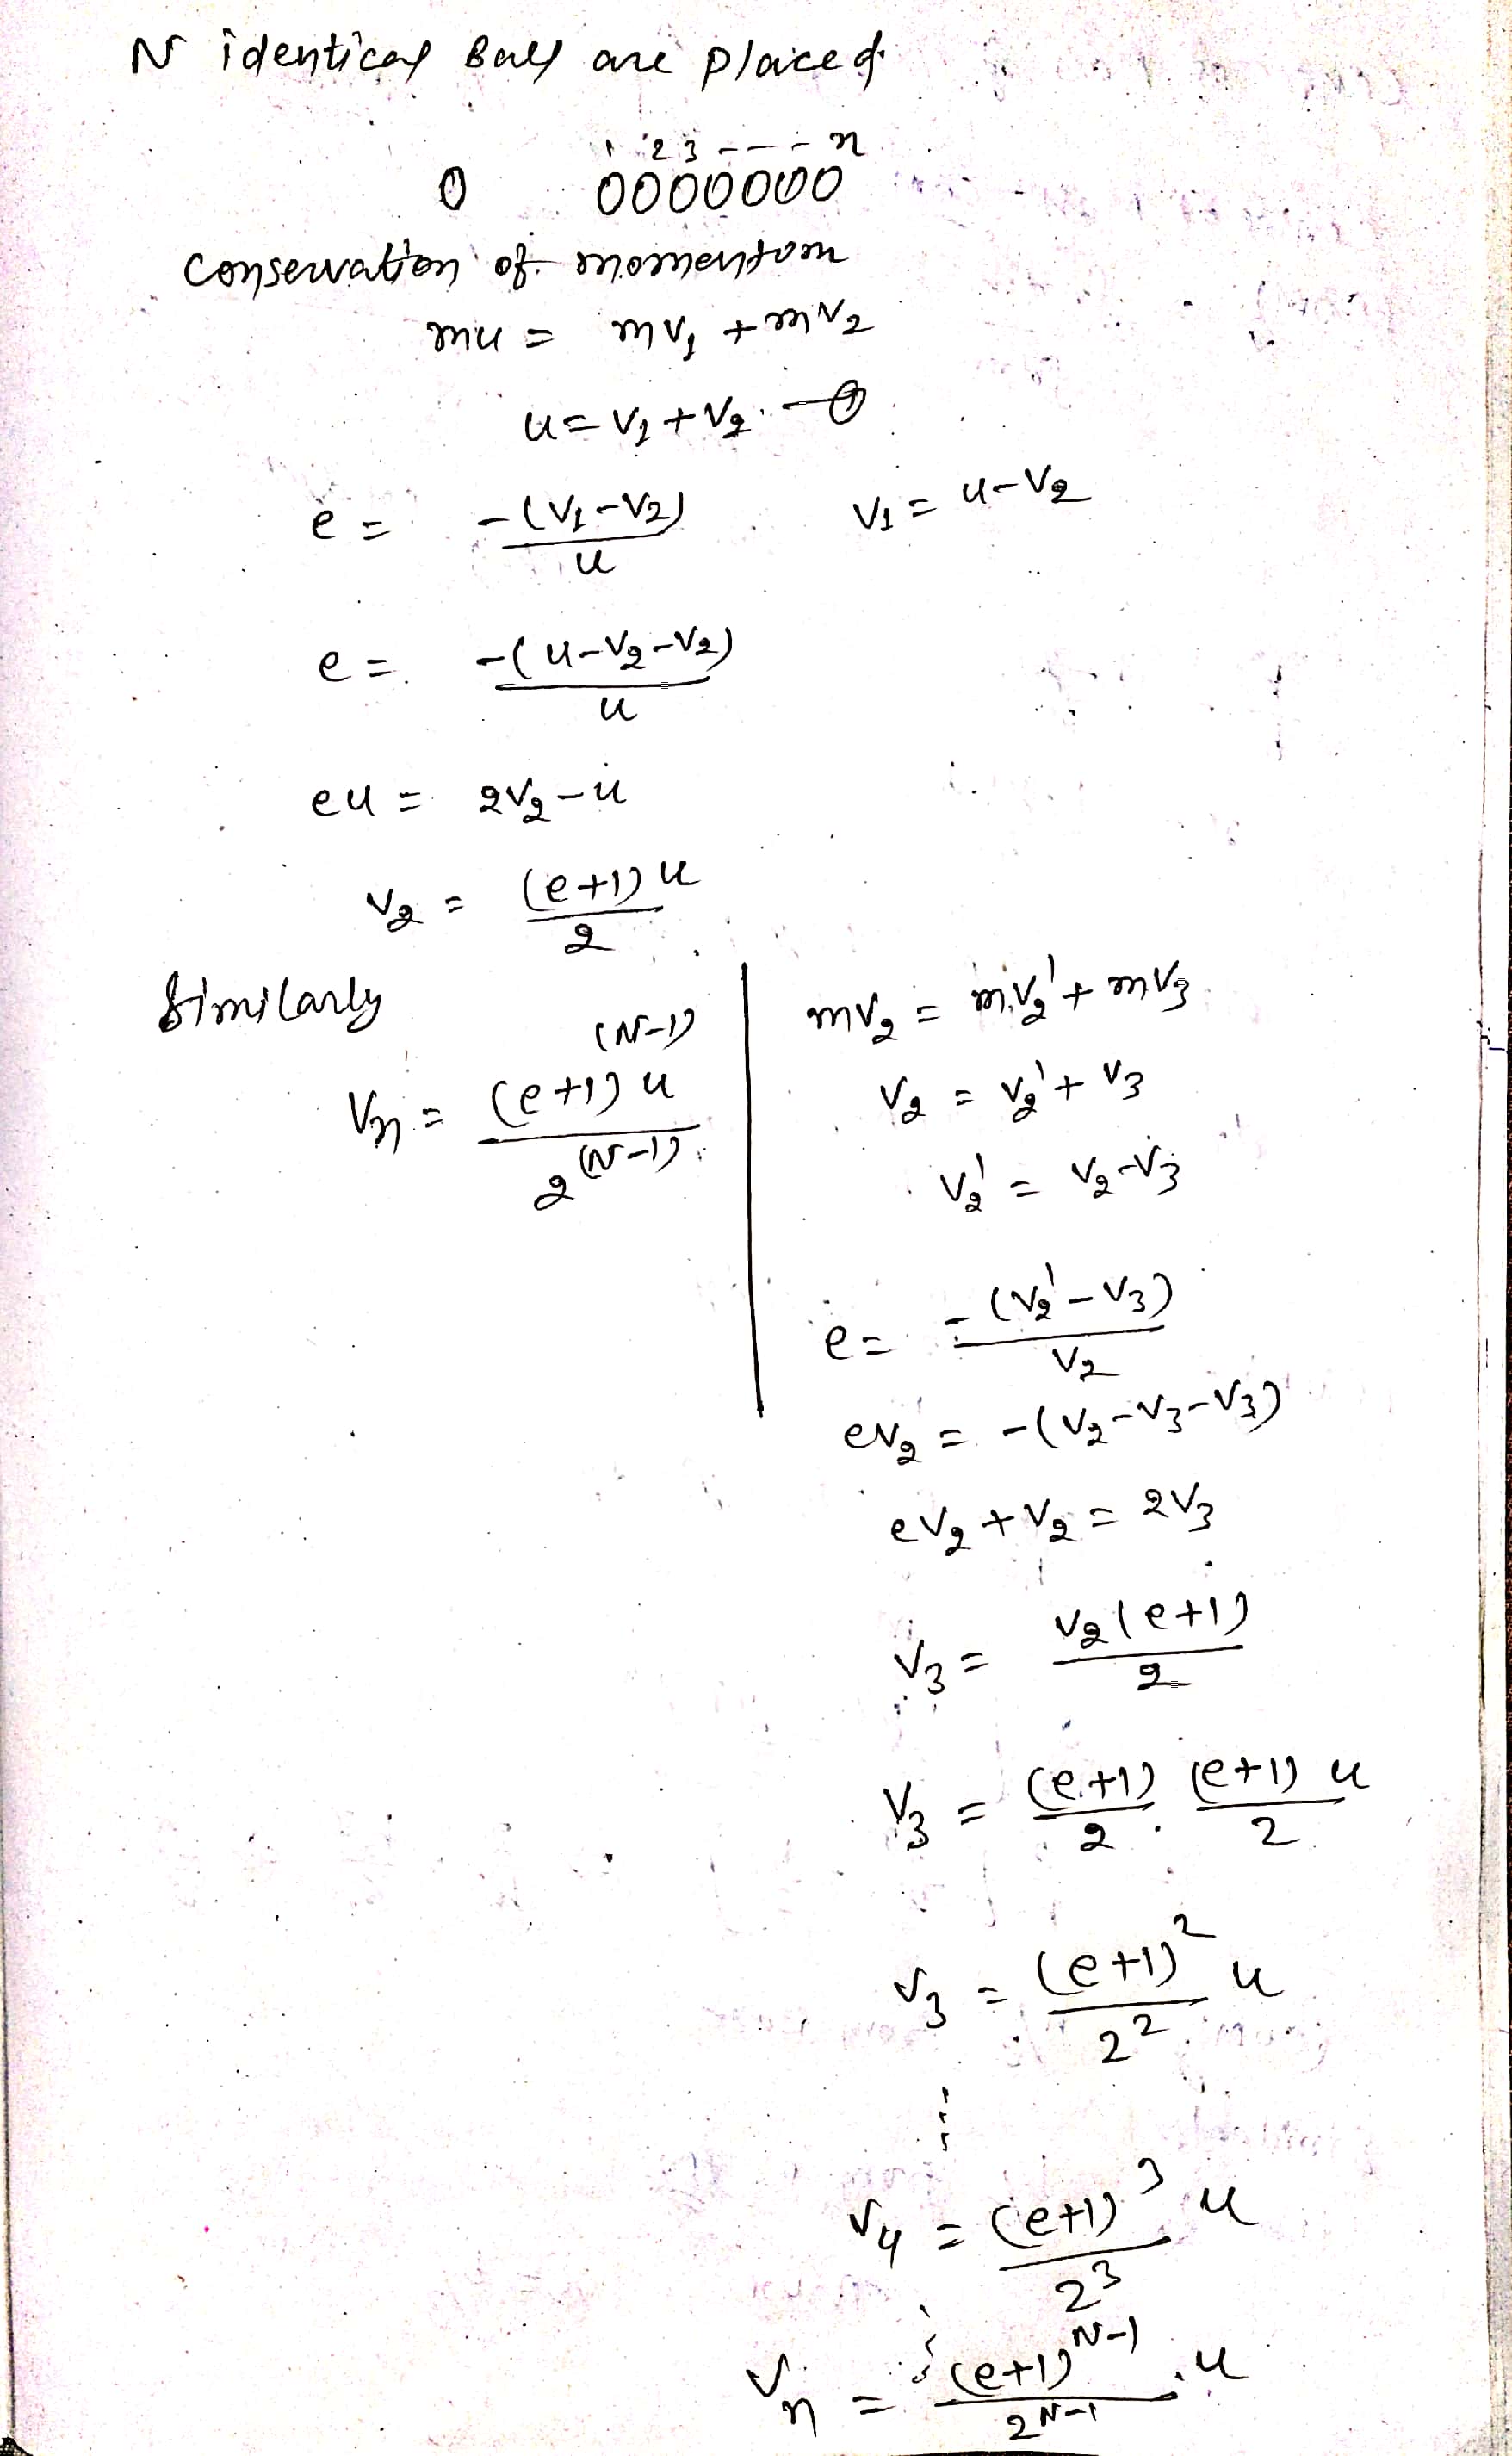 N identical Ball are placed
1 2 3 - - - n
0 0000000
conservation of momentum
mu = mv₁ + mv₂
u = v₁ + v₂ —①
e = -(v₁-v₂)/u v₁ = u-v₂
e = -(u-v₂-v₂)/u
eu = 2v₂-u
v₂ = (e+1)u/2
Similarly
vₙ = (e+1)^(N-1) u/2^(N-1)
mv₂ = mv₂' + mv₃
v₂ = v₂' + v₃
v₂' = v₂-v₃
e = -(v₂'-v₃)/v₂
ev₂ = -(v₂-v₃-v₃)
ev₂ + v₂ = 2v₃
v₃ = v₂(e+1)/2
v₃ = (e+1)/2 . (e+1)u/2
v₃ = (e+1)²/2² u
v₄ = (e+1)³/2³ u
vₙ = (e+1)^(N-1)/2^(N-1) . u